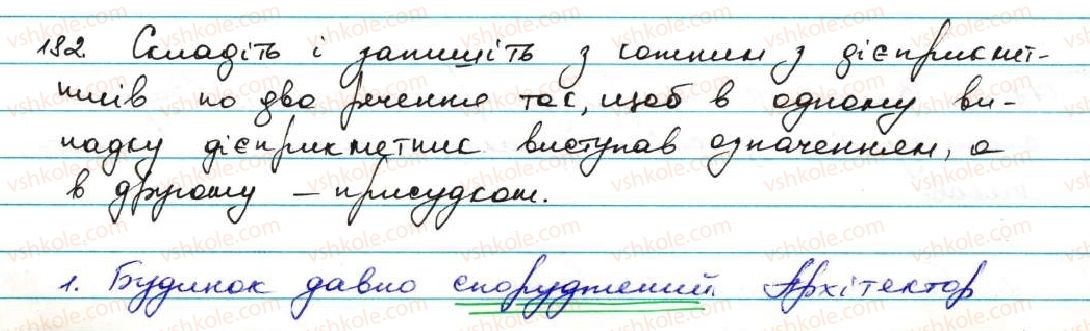 192. Складіть і запишіть з кожним з дієприкмет-
ників по два речення так, щоб в одному ви-
падку дієприкметник виступав означенням, а
в другому – присудком.
1. Будинок давно споруджений. Архітектор